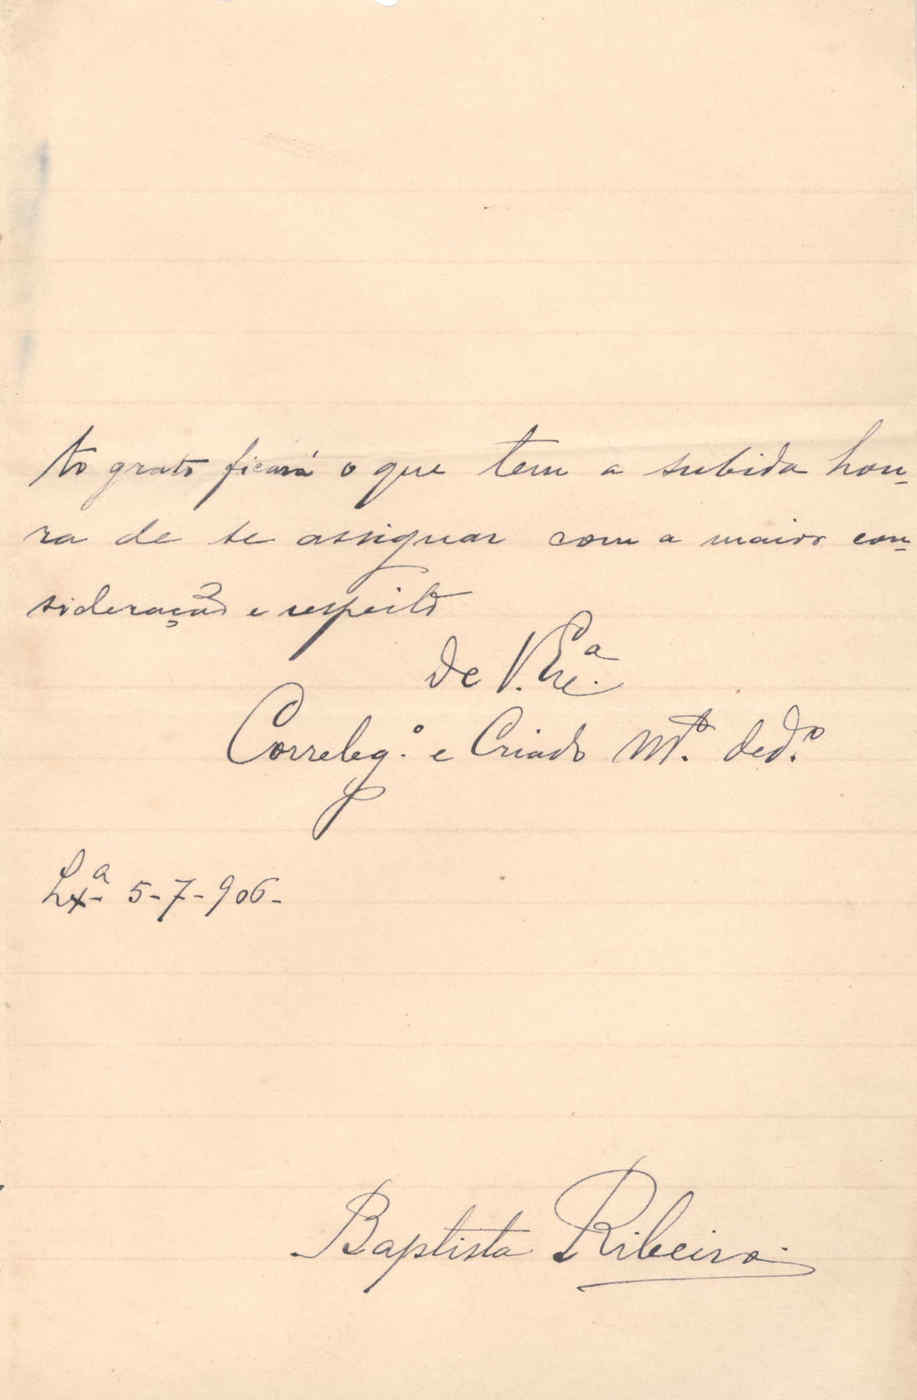 to grato ficará o que tem a subida hon-
ra de se assignar com a maior con-
sideração e respeito
de V. Exc.ª
Correleg.º e Criado Mt.º ded.º
Lx.ª 5-7-906-
Baptista Ribeiro.